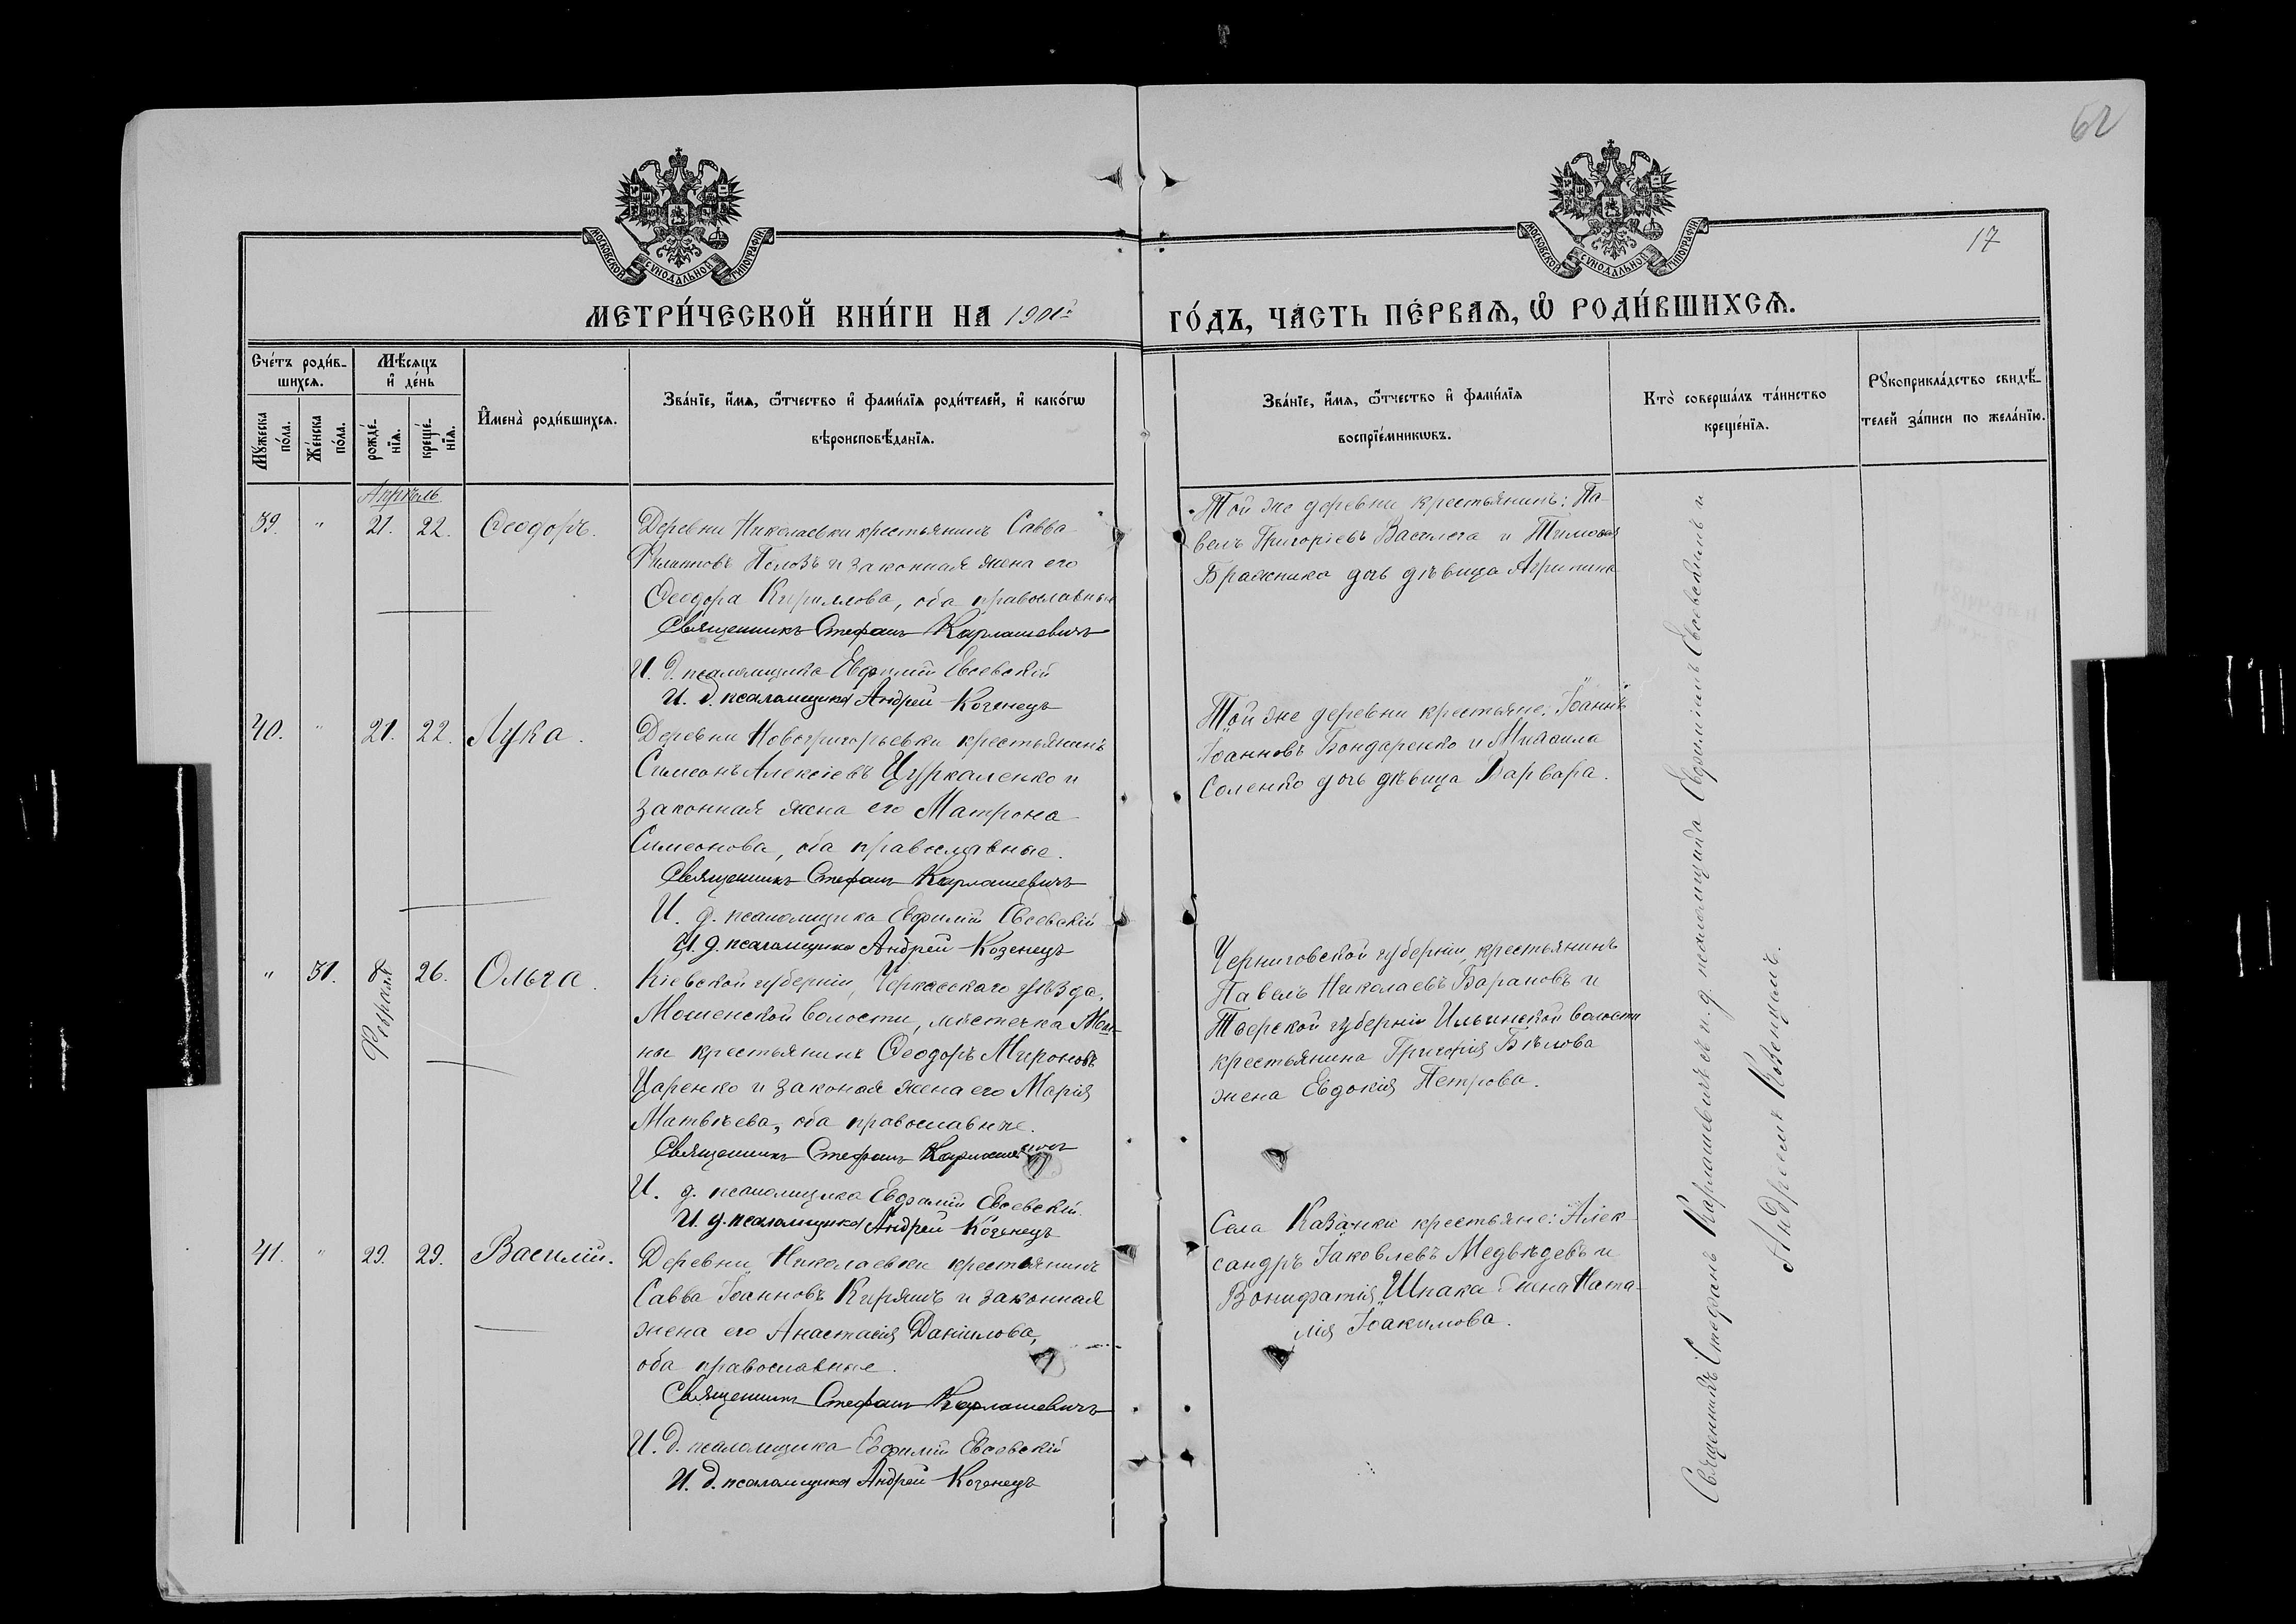 62
17
МОСКОВСКОЙ СѴНОДАЛЬНОЙ ТИПОГРАФІИ
МОСКОВСКОЙ СѴНОДАЛЬНОЙ ТИПОГРАФІИ
МЕТРИ́ЧЕСКОЙ КНИ́ГИ НА 1901й
ГО́ДЪ, ЧА́СТЬ ПЕ́РВАѦ, Ѡ҆ РОДИ́ВШИХСѦ.
Сче́тъ роди́в-
шихсѧ.
Мѣ́сѧцъ
и҆ де́нь
Мꙋ́жеска
по́ла.
Же́нска
по́ла.
рожде́-
нїѧ.
креще́-
нїѧ.
И҆мена̀ роди́вшихсѧ.
Зва́нїе, и҆́мѧ, ѻ҆́тчество и҆ фами́лїѧ роди́телей, и҆ како́гѡ
вѣроисповѣ́данїѧ.
Зва́нїе, и҆́мѧ, ѻ҆́тчество и҆ фами́лїѧ
воспрїе́мникѡвъ.
Кто̀ соверша́лъ та́инство
креще́нїѧ.
Рꙋкоприкла́дство свидѣ́-
телей за́писи по жела́нїю.
Апрѣль
39. " 21. 22. Ѳеодоръ.
Деревни Николаевки крестьянинъ Савва
Филипповъ и законная жена его
Ѳеодора Кириллова, оба православные
Священникъ Стефанъ Карлашевичъ
И. д. псаломщика Евфимій Евсевскій
И. д. псаломщика Андрей Козенецъ
Той же деревни крестьянинъ: Па-
велъ Григоріевъ и Тимоѳея
Бражника дочь дѣвица Агрипина
40. " 21. 22. Лука.
Деревни Новогригорьевки крестьянинъ
Симеонъ Алексіевъ Цуркаленко и
законная жена его Матрона
Симеонова, оба православные.
Священникъ Стефанъ Карлашевичъ
И. д. псаломщика Евфимій Евсевскій
И. д. псаломщика Андрей Козенецъ
Той же деревни крестьяне: Іоаннъ
Іоанновъ Бондаренко и Михаила
Соленко дочь дѣвица Варвара.
" 31. 8 Февраля 26. Ольга.
Кіевской губерніи, Черкасскаго уѣзда,
Мошенской волости, мѣстечка Мош-
ны крестьянинъ Ѳеодоръ Мироновъ
Царенко и законая жена его Марія
Матвѣева, оба православные.
Священникъ Стефанъ Карлашевичъ
И. д. псаломщика Евфимій Евсевскій.
И. д. псаломщика Андрей Козенецъ
Черниговской губерніи, крестьянинъ
Павелъ Николаевъ Барановъ и
Тверской губерніи Ильинской волости
крестьянина Григорія Бѣлова
жена Евдокія Петрова.
41. " 29. 29. Василій.
Деревни Николаевки крестьянинъ
Савва Іоанновъ Киряшъ и законная
жена его Анастасія Даніилова,
оба православные.
Священникъ Стефанъ Карлашевичъ
И. д. псаломщика Евфимій Евсевскій
И. д. псаломщика Андрей Козенецъ
Села Казанки крестьяне: Алек-
сандръ Іаковлевъ Медвѣдевъ и
Вонифатія Шпака жена Ната-
лія Іоакимова.
Священникъ Стефанъ Карлашевичъ съ и. д. псаломщика Евфиміемъ Евсевскимъ и
Андреемъ Козенцемъ.